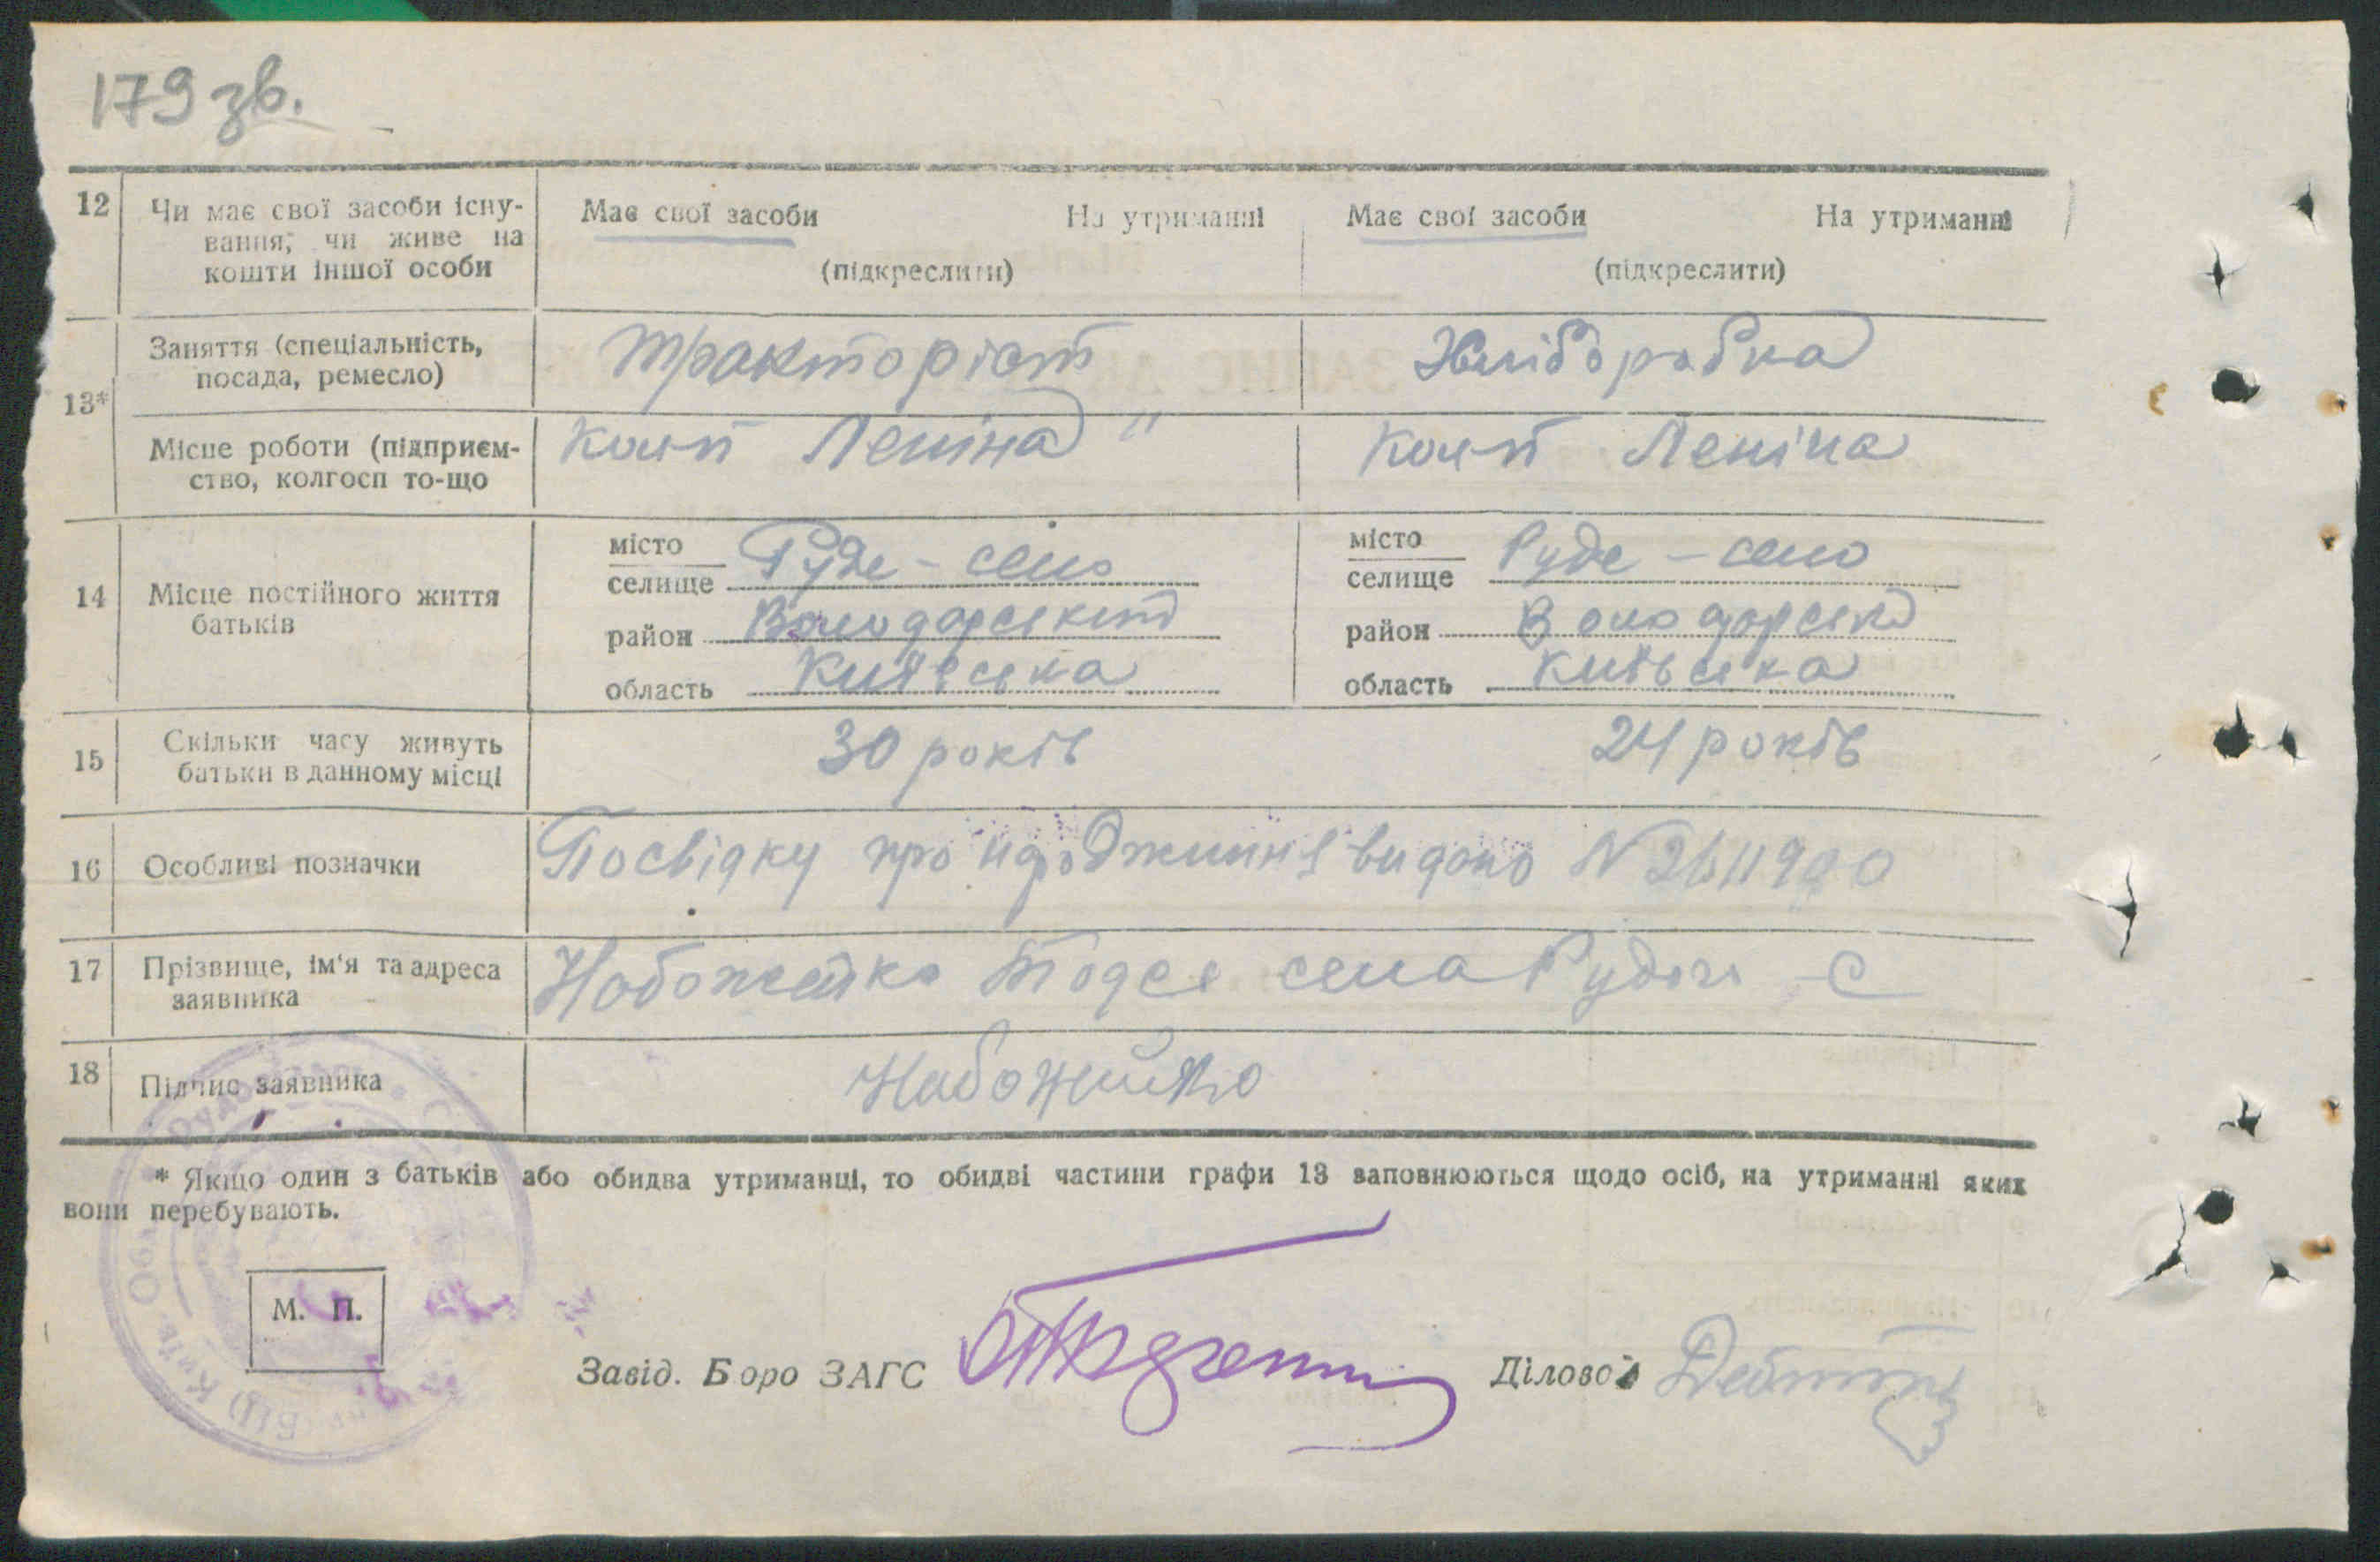 179 зв.
12 Чи має свої засоби існу-
вання, чи живе на
кошти іншої особи
Має свої засоби На утриманні
(підкреслити)
Має свої засоби На утриманні
(підкреслити)
13*
Заняття (спеціальність,
посада, ремесло)
Тракторіст
Хліборобка
Місце роботи (підприєм-
ство, колгосп то-що
Колгп Леніна
Колгп Леніна
14 Місце постійного життя
батьків
місто
селище Руде-село
район Володарський
область Київська
місто
селище Руде-село
район Володарськ
область Київська
15 Скільки часу живуть
батьки в данному місці
30 років
24 років
16 Особливі позначки
Посвідку про народження видано N
17 Прізвище, ім'я та адреса
заявника
Набожейко Тодся села Рудого -С
18 Підпис заявника
Набожийко
* Якщо один з батьків або обидва утриманці, то обидві частини графи 13 заповнюються щодо осіб, на утриманні яких
вони перебувають.
М. П.
Завід. Боро ЗАГС
Діловод